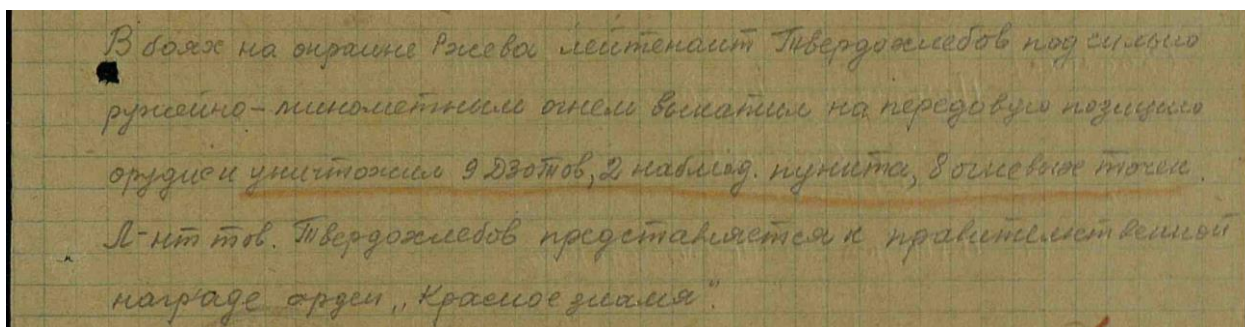 В боях на окраине Ржева лейтенант Твердохлебов под сильно
ружейно-минометным огнем выкатил на передовую позицию
орудие и уничтожил 9 Дзотов, 2 наблюд. пункта, 8 огневых точек.
Л-нт тов. Твердохлебов представляется к правительственной
награде орден „Красное знамя".